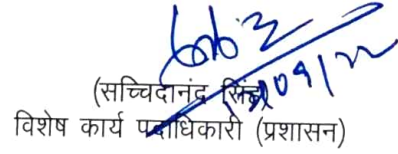 (सच्चिदानंद सिंह)
विशेष कार्य पदाधिकारी (प्रशासन)